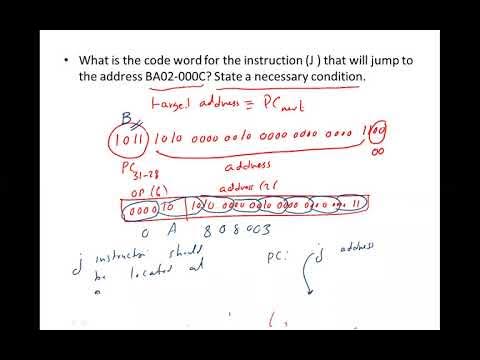 • What is the code word for the instruction (J ) that will jump to
the address BA02-000C? State a necessary condition.
target address = PC next
B
1011 1010 0000 0010 0000 0000 0000 1100
PC 31-28 address 00
op (6) address (26
0000 10 1010 0000 0010 0000 0000 0000 11
0 A 8 0 8 0 0 3
j instruction should PC: j address
be located at
a